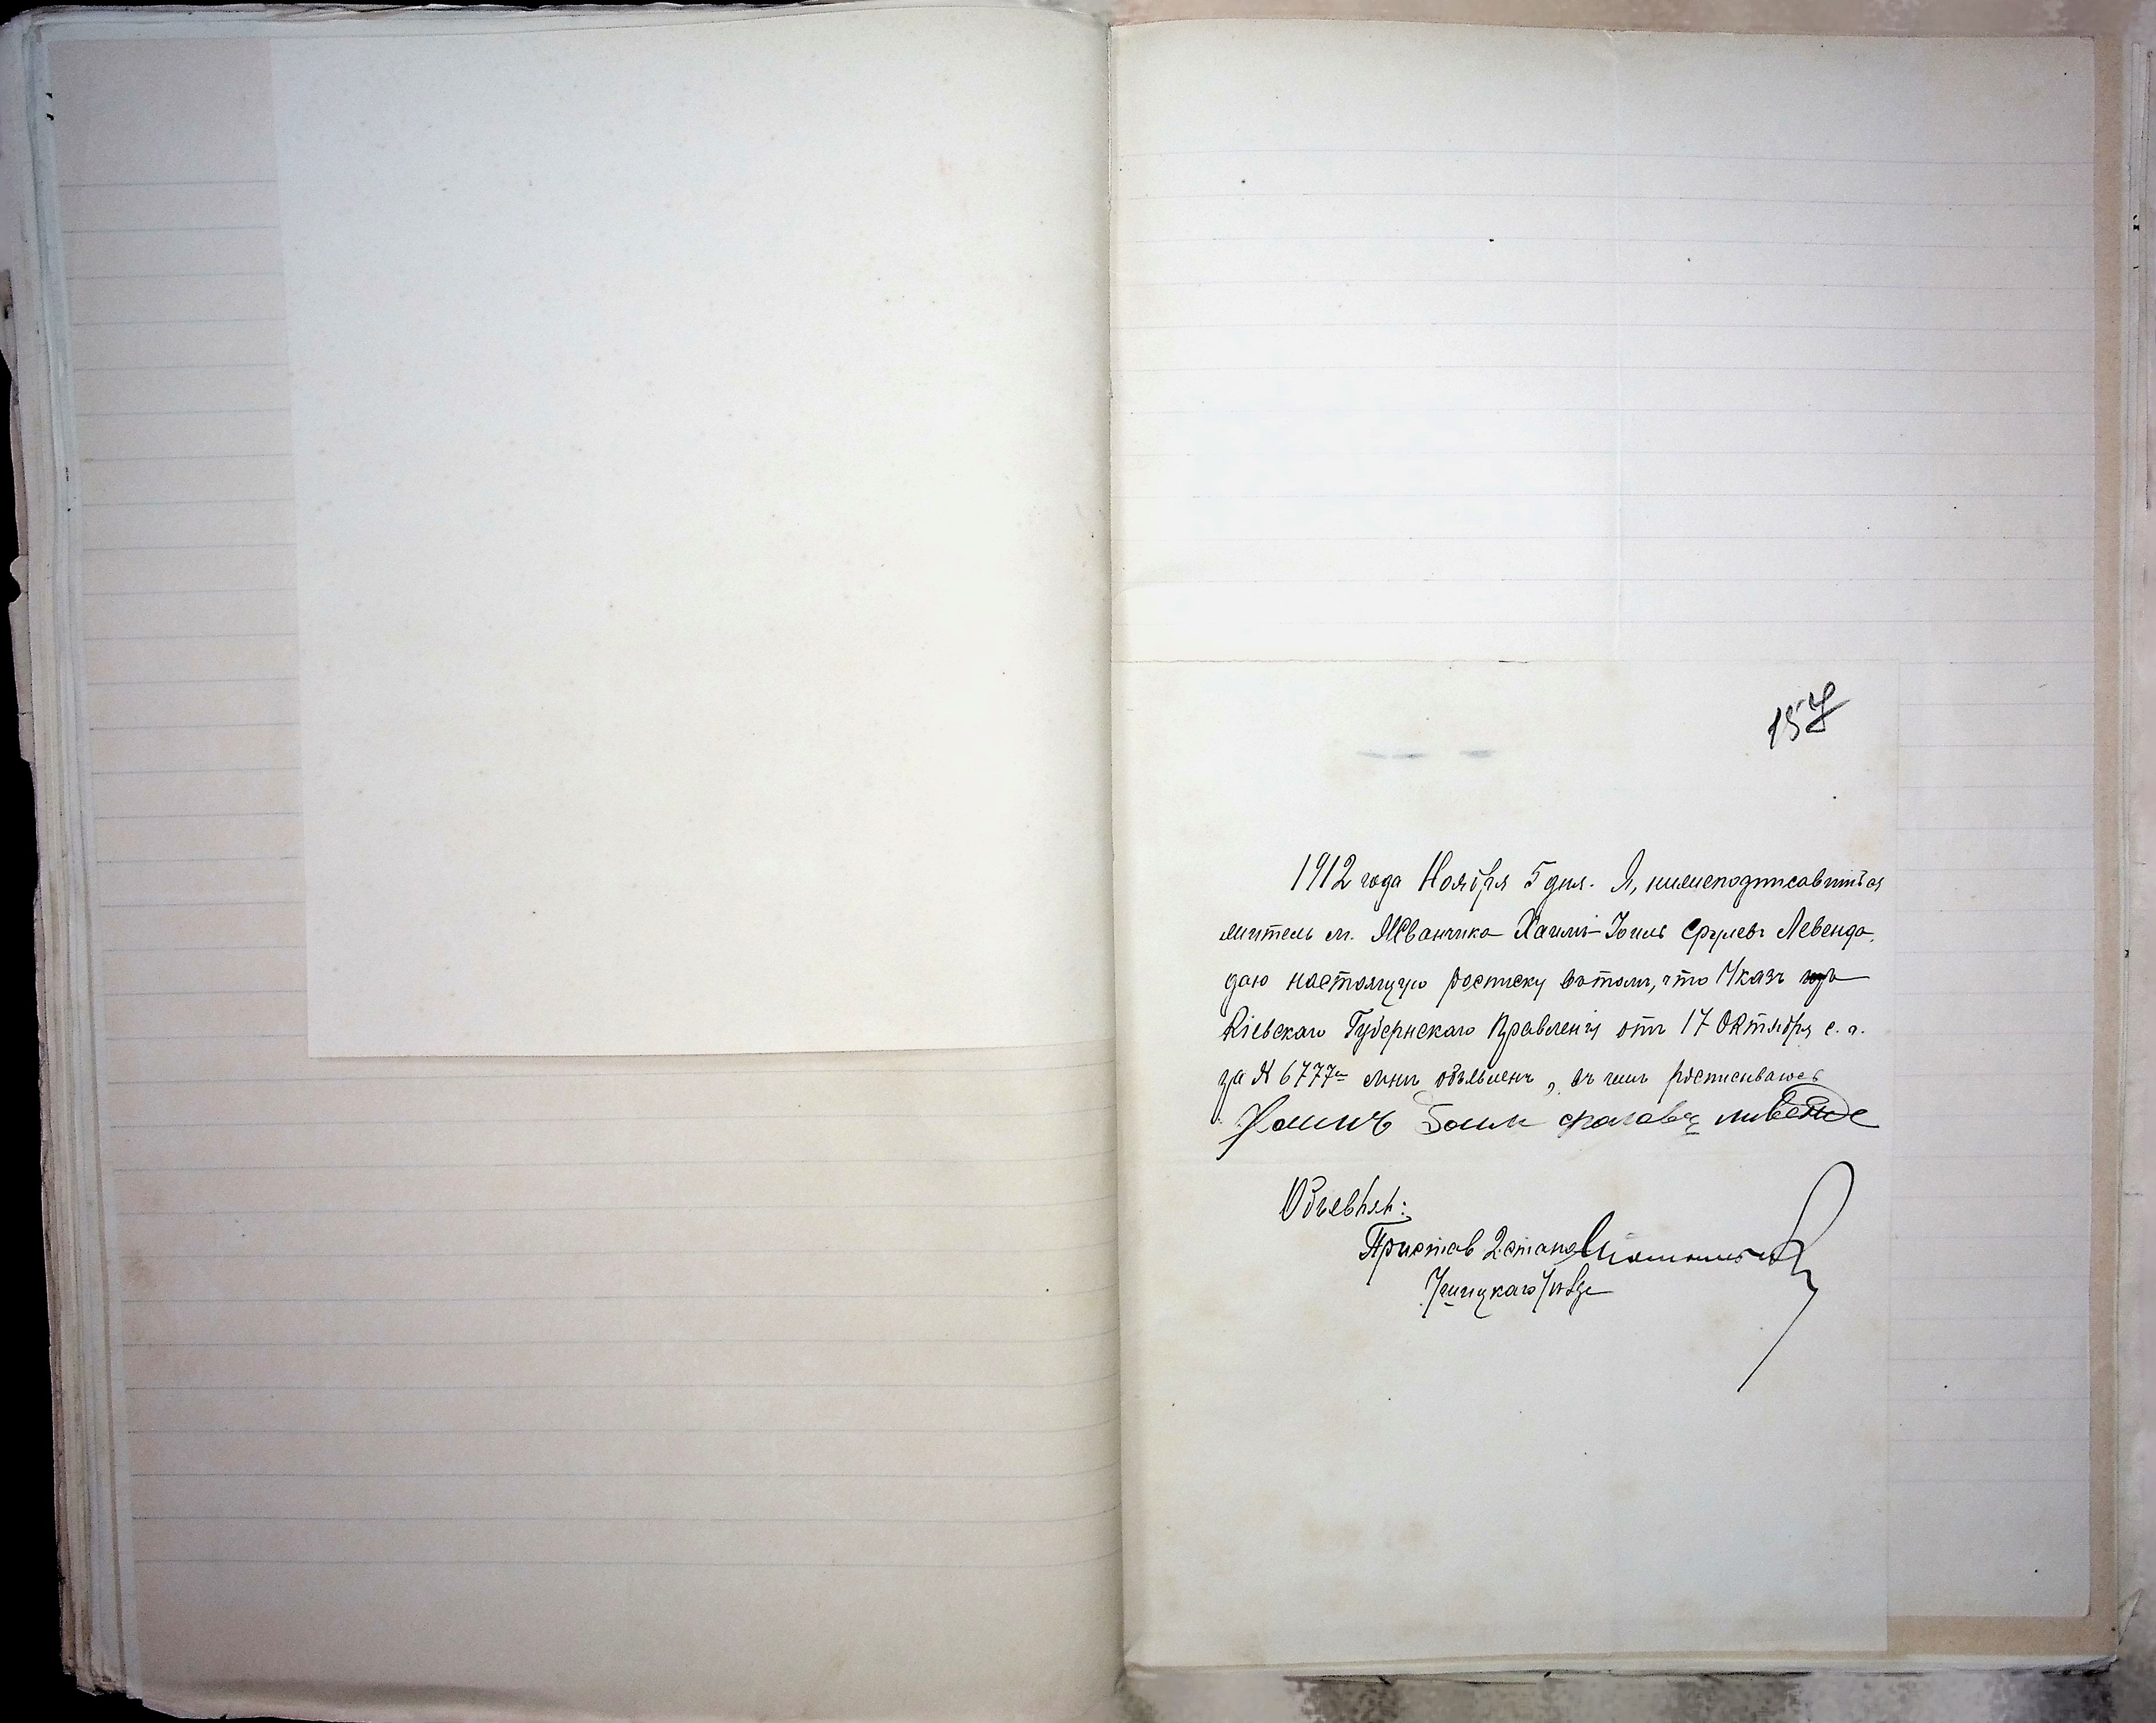 157
1912 года Ноября 5 дня. Я, нижеподписавшійся
житель м. Жванчика Хаимъ-Іоиль Срулевъ Левенда,
даю настоящую росписку въ томъ, что Указъ
Кіевскаго Губернскаго Правленія отъ 17 Октября с. г.
за № 6777 мнѣ объявленъ, въ чемъ росписываюсь
Хаимъ
Объявилъ:
Приставъ 2 стана
Ушицкаго уѣзда